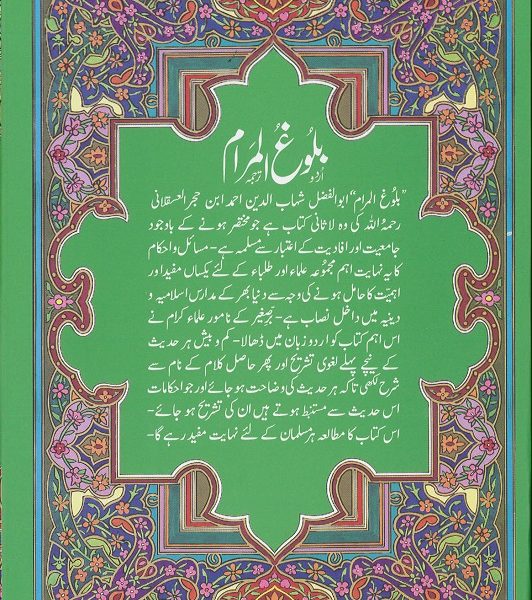 بلُوغُ المَرام
اُردو ترجمہ
"بلُوغ المرام" ابوالفضل شہاب الدین احمد ابن حجر العسقلانی
رحمۃ اللہ کی وہ لاثانی کتاب ہے جو مختصر ہونے کے باوجود
جامعیت اور افادیت کے اعتبار سے مسلمہ ہے۔ مسائل و احکام
کا یہ نہایت اہم مجموعہ علماء اور طلباء کے لئے یکساں مفید اور
اہمیّت کا حامل ہونے کی وجہ سے دنیا بھر کے مدارس اسلامیہ و
دینیہ میں داخل نصاب ہے۔ برصغیر کے نامور علماء کرام نے
اس اہم کتاب کو اردو زبان میں ڈھالا۔ کم و بیش ہر حدیث
کے نیچے پہلے لغوی تشریح اور پھر حاصل کلام کے نام سے
شرح لکھی تاکہ ہر حدیث کی وضاحت ہو جائے اور جو احکامات
اس حدیث سے مستنبط ہوتے ہیں ان کی تشریح ہو جائے۔
اس کتاب کا مطالعہ ہر مسلمان کے لئے نہایت مفید رہے گا۔